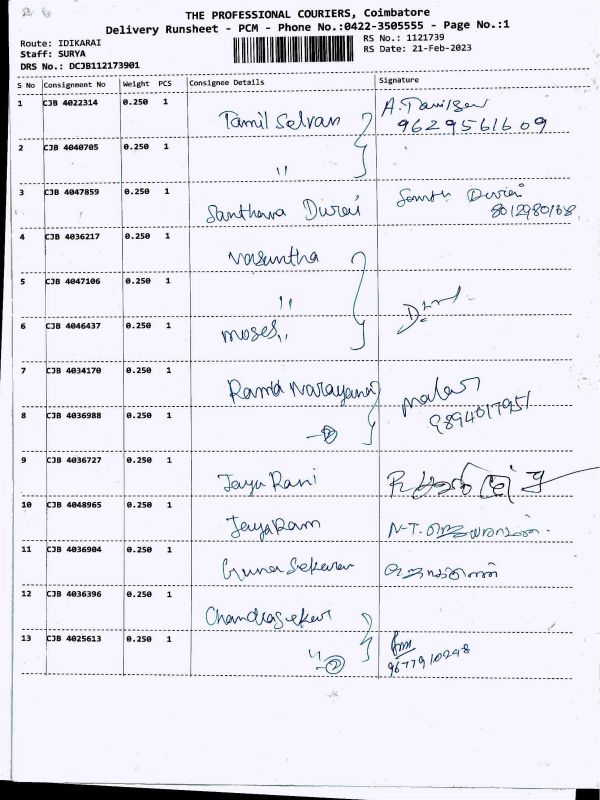 THE PROFESSIONAL COURIERS, Coimbatore
Delivery Runsheet - PCM - Phone No.:0422-3505555 - Page No.:1
Route: IDIKARAI
Staff: SURYA
DRS No.: DCJB112173901
RS No.: 1121739
RS Date: 21-Feb-2023
S No Consignment No Weight PCS Consignee Details Signature
1 CJB 4022314 0.250 1 Tamil Selvan
9629561609
2 CJB 4040705 0.250 1 "
3 CJB 4047859 0.250 1 Santhana Durai
4 CJB 4036217 0.250 1 Vasuntha
5 CJB 4047106 0.250 1 "
6 CJB 4046437 0.250 1 moses,,
7 CJB 4034170 0.250 1 Rama Narayanan
9894017951
8 CJB 4036988 0.250 1
9 CJB 4036727 0.250 1 Jaya Rani
10 CJB 4048965 0.250 1 JayaRam
11 CJB 4036904 0.250 1 Guna Sekaran
12 CJB 4036396 0.250 1 Chandrasekar
13 CJB 4025613 0.250 1 " 2
9677910248